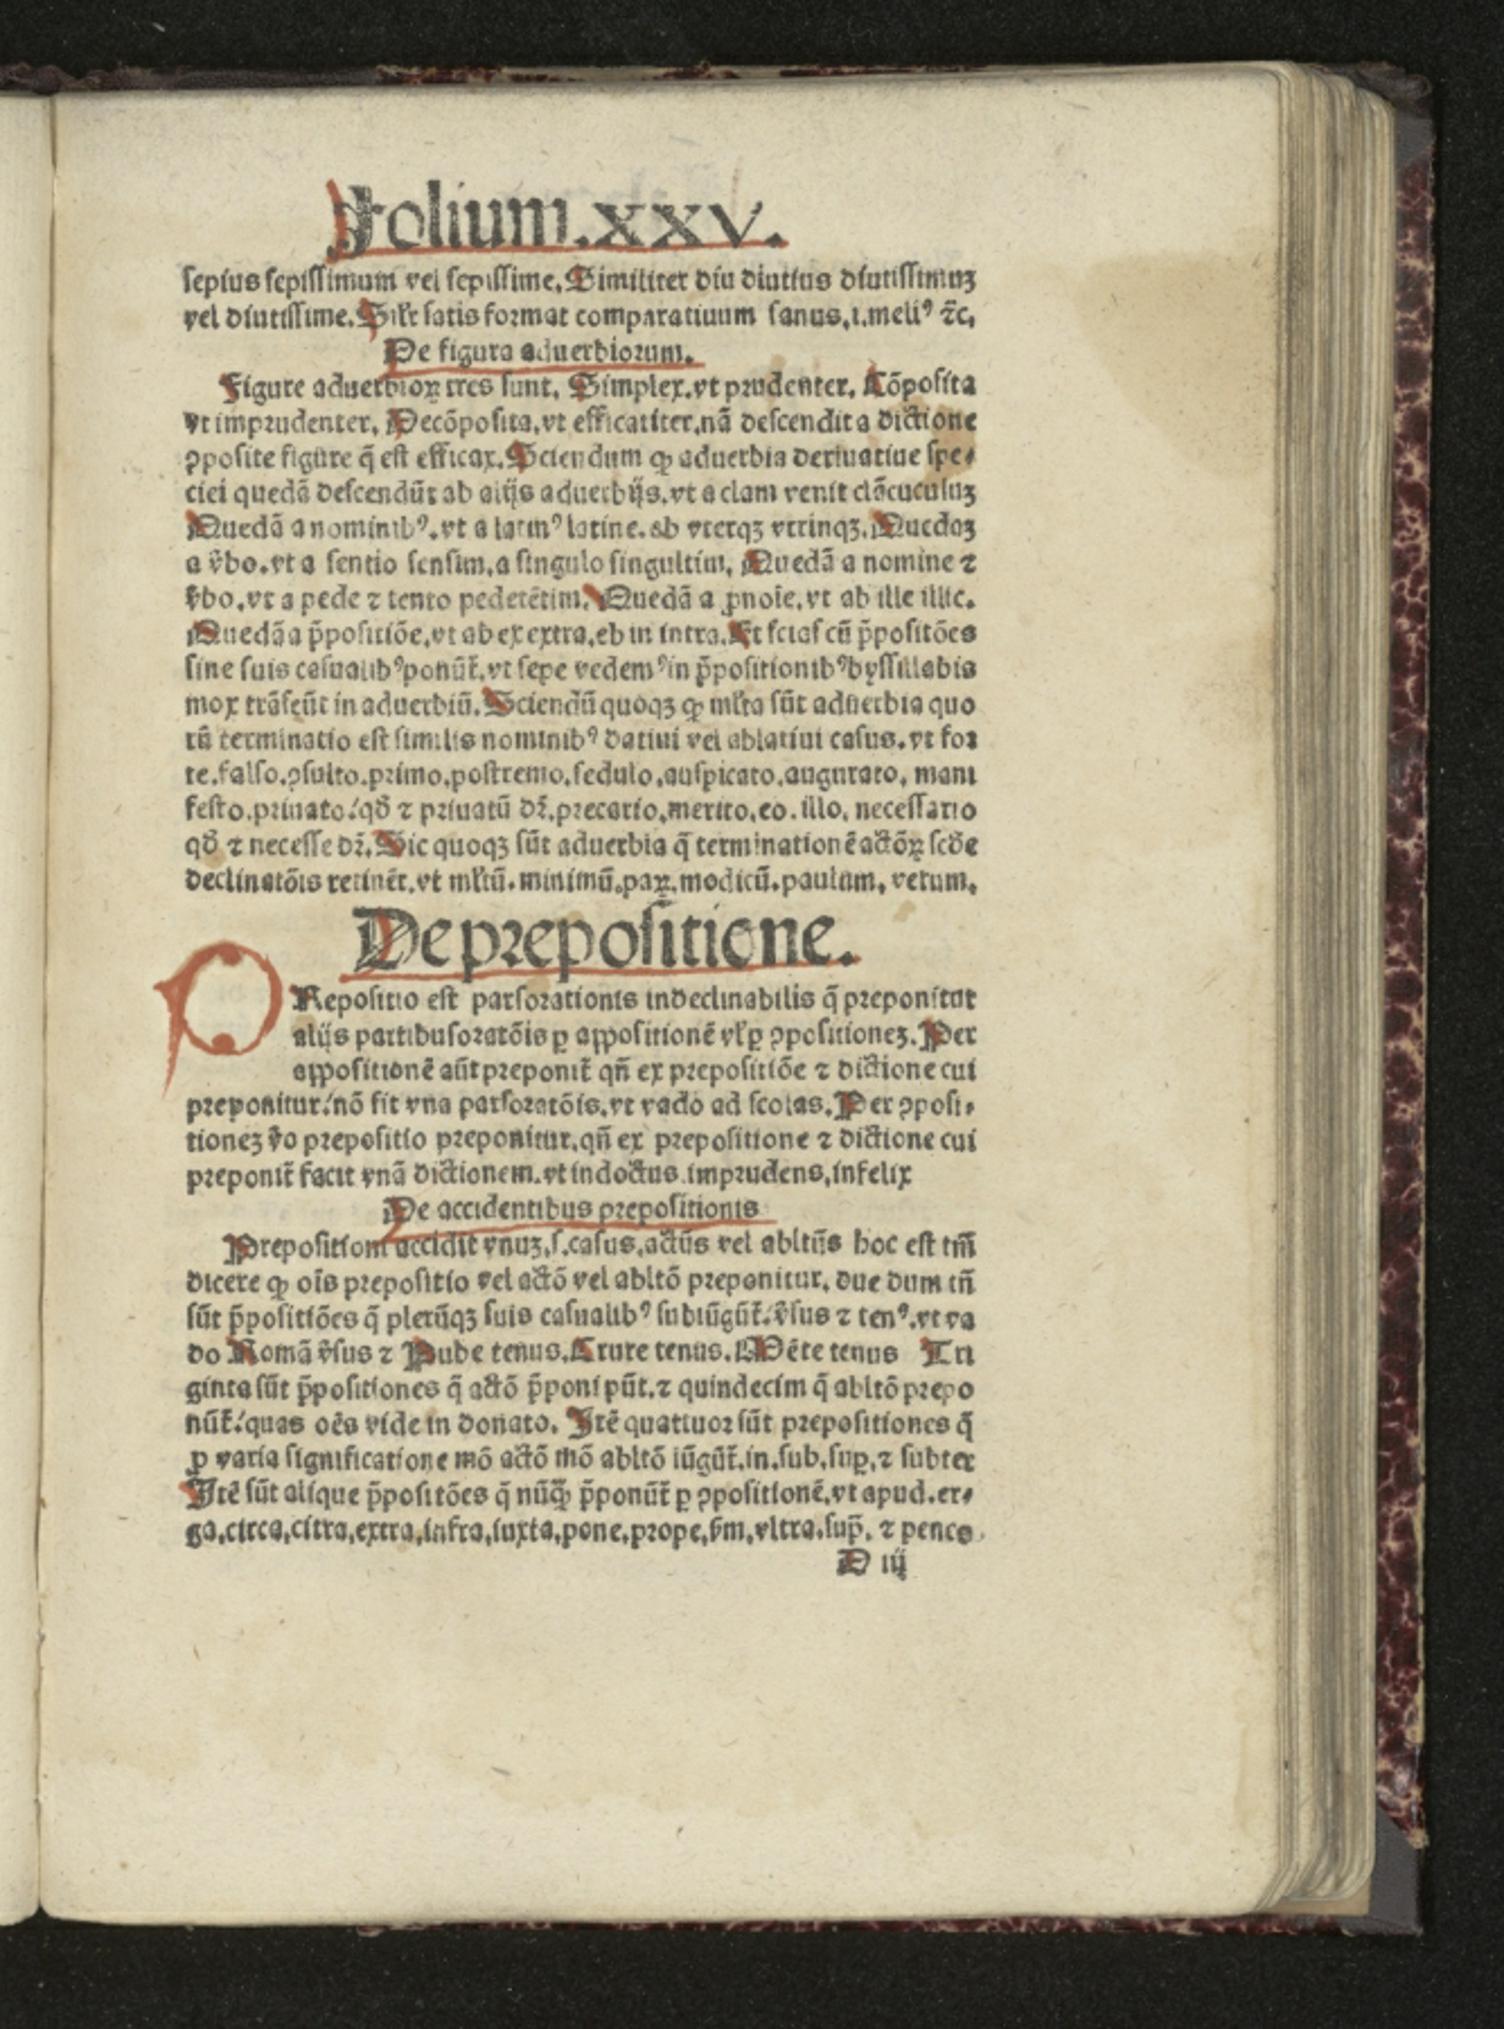 Folium.xxv.
sepius sepissimum vel sepissime. Similiter diu diutius diutissimuꝫ
vel diutissime. Sil̛r satis format comparatiuum sanus.i.meliꝰ ⁊c̃.
De figura aduerbiorum.
Figure aduerbioꝝ tres sunt. Simplex.vt prudenter. Cōposita
vt imprudenter. Decōposita.vt efficaciter.nā descendit a dictione
ꝯposite figure q̄ est efficax. Sciendum ꝙ aduerbia deriuatiue spe⸗
ciei quedā descendūt ab alijs aduerbijs.vt a clam venit clāculuꝫ
Quedā a nominibꝰ.vt a latinꝰ latine.ab vterqꝫ vtrinqꝫ. Quedaꝫ
a v̄bo.vt a sentio sensim.a singulo singultim. Quedā a nomine ⁊
v̄bo.vt a pede ⁊ tento pedetētim. Quedā a ꝓnoīe.vt ab ille illic.
Quedā a p̄positiōe.vt ab ex extra.eb in intra. Et scias cū p̄positōes
sine suis casualibꝰ ponūt̄.vt sepe vedemꝰ in p̄positionibꝰ byssillabis
mox trāseūt in aduerbiū. Sciendū quoqꝫ ꝙ ml̄ta sūt aduerbia quo
rū terminatio est similis nominibꝰ datiui vel ablatiui casus.vt for
te.falso.ꝯsulto.primo.postremo.sedulo.auspicato.augurato. mani
festo.priuato:qd̄ ⁊ priuatū dr̄.precario.merito.eo.illo. necessario
qd̄ ⁊ necesse dr̄. Sic quoqꝫ sūt aduerbia q̄ terminationē actōꝝ scd̄e
declinatōis retinēt.vt ml̄tū.minimū.paꝝ.modicū.paulum. verum.
De prepositione.
PRepositio est pars orationis indeclinabilis q̄ preponitur
alijs partibus oratōis ꝑ appositionē vl̄ ꝑ ꝯpositioneꝫ. Per
appositionē aūt preponit̄ qn̄ ex prepositiōe ⁊ dictione cui
preponitur:nō fit vna pars oratōis.vt vado ad scolas. Per ꝯposi⸗
tioneꝫ v̄o prepositio preponitur.qn̄ ex prepositione ⁊ dictione cui
preponit̄ facit vnā dictionem.vt indoctus imprudens.infelix
De accidentibus prepositionis
Prepositioni accidit vnuꝫ.s.casus.actūs vel abltūs hoc est tm̄
dicere ꝙ oīs prepositio vel actō vel abltō preponitur. due dum tn̄
sūt p̄positiōes q̄ plerūqꝫ suis casualibꝰ subiūgūt̄:v̄sus ⁊ tenꝰ.vt va
do Romā v̄sus ⁊ Pube tenus. Crure tenus. Mēte tenus Tri
ginta sūt p̄positiones q̄ actō p̄poni pn̄t.⁊ quindecim q̄ abltō prepo
nūt̄:quas oēs vide in donato. Itē quattuor sūt prepositiones q̄
ꝓ varia significatione mō actō mō abltō iūgūt̄.in.sub.suꝑ.⁊ subter
Itē sūt alique p̄positōes q̄ nūꝙ̄ p̄ponūt̄ ꝑ ꝯpositionē.vt apud.er⸗
ga.circa.citra.extra.infra.iuxta.pone.prope.s̄m.vltra.sup̄. ⁊ penes.
D iij